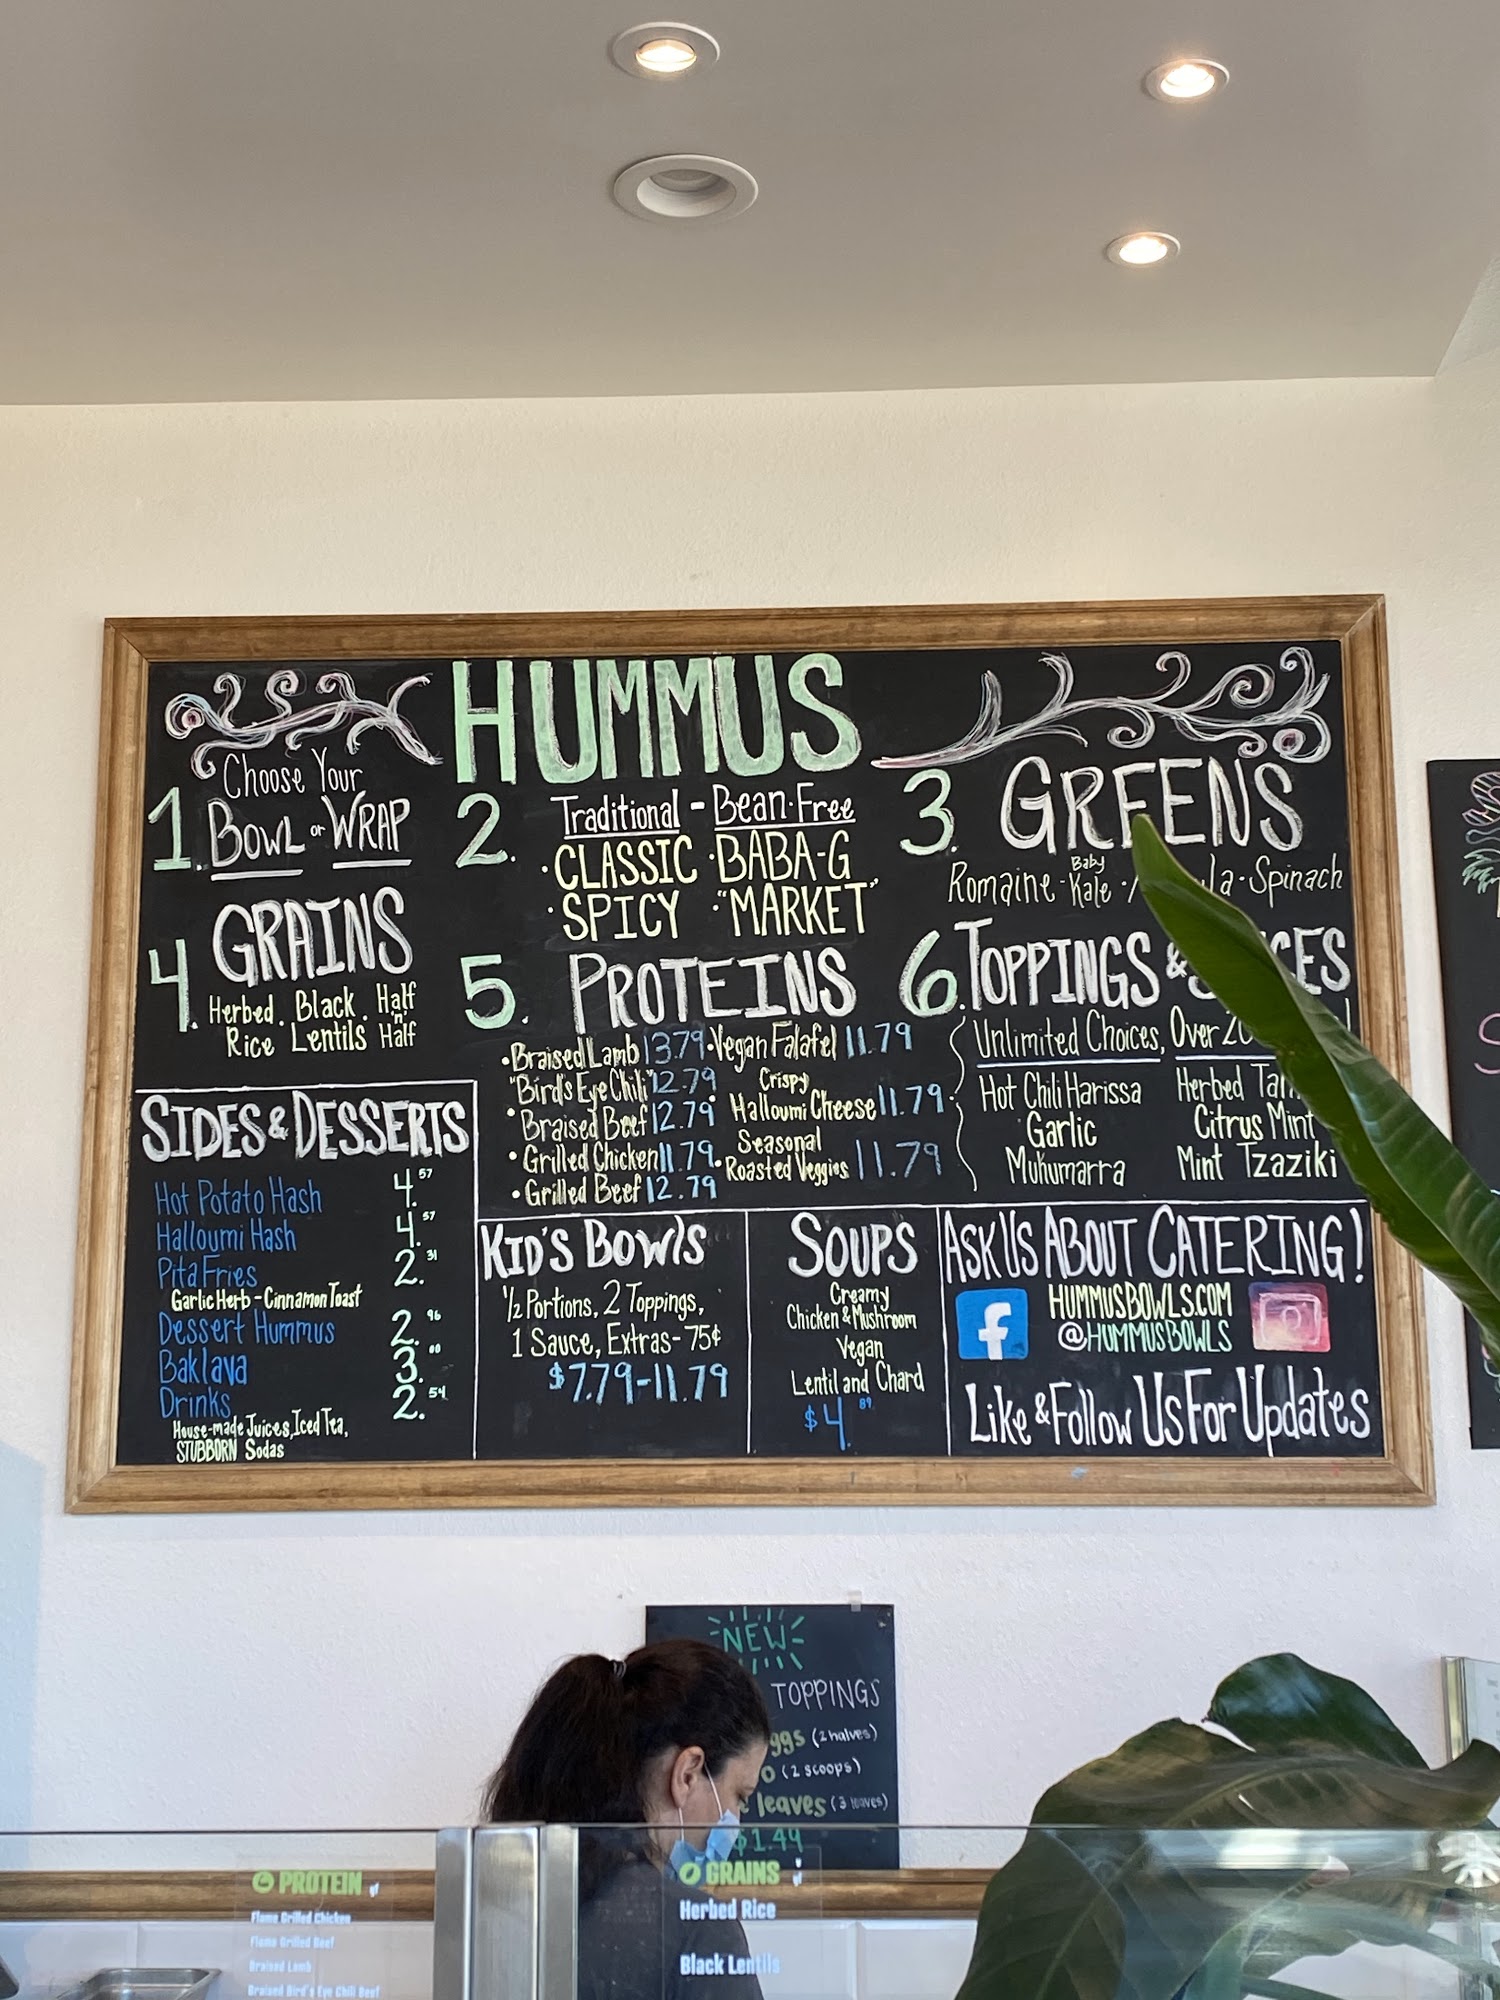 HUMMUS
1. Choose Your
BOWL or WRAP
2. Traditional - Bean-Free
·CLASSIC ·BABA-G
·SPICY ·"MARKET"
3. GREENS
Romaine - Baby Kale · la · Spinach
4. GRAINS
Herbed · Black · Half
Rice Lentils 'n' Half
5. PROTEINS
·Braised Lamb 13.79
"Bird's Eye Chili" 12.79
·Braised Beef 12.79
·Grilled Chicken 11.79
·Grilled Beef 12.79
·Vegan Falafel 11.79
·Crispy
Halloumi Cheese 11.79
·Seasonal
Roasted Veggies 11.79
6. TOPPINGS &
Unlimited Choices, Over
Hot Chili Harissa
Garlic
Muhumarra
Herbed
Citrus Mint
Mint Tzaziki
SIDES & DESSERTS
Hot Potato Hash 4.57
Halloumi Hash 4.57
Pita Fries 2.31
Garlic Herb - Cinnamon Toast
Dessert Hummus 2.96
Baklava 3.00
Drinks 2.54
House-made Juices, Iced Tea,
STUBBORN Sodas
KID'S BOWLS
1/2 Portions, 2 Toppings,
1 Sauce, Extras - 75¢
$7.79-11.79
SOUPS
Creamy
Chicken & Mushroom
Vegan
Lentil and Chard
$4.89
ASK US ABOUT CATERING!
f
HUMMUSBOWLS.COM
@HUMMUSBOWLS
Like & Follow Us For Updates
NEW
TOPPINGS
ggs (2 halves)
o (2 scoops)
leaves (3 leaves)
$1.49
PROTEIN gf
Flame Grilled Chicken
Flame Grilled Beef
Braised Lamb
Braised Bird's Eye Chili Beef
GRAINS
Herbed Rice
Black Lentils